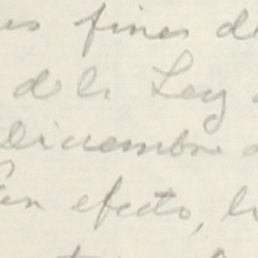 es fines de
de la Ley
Diciembre
en efecto, l